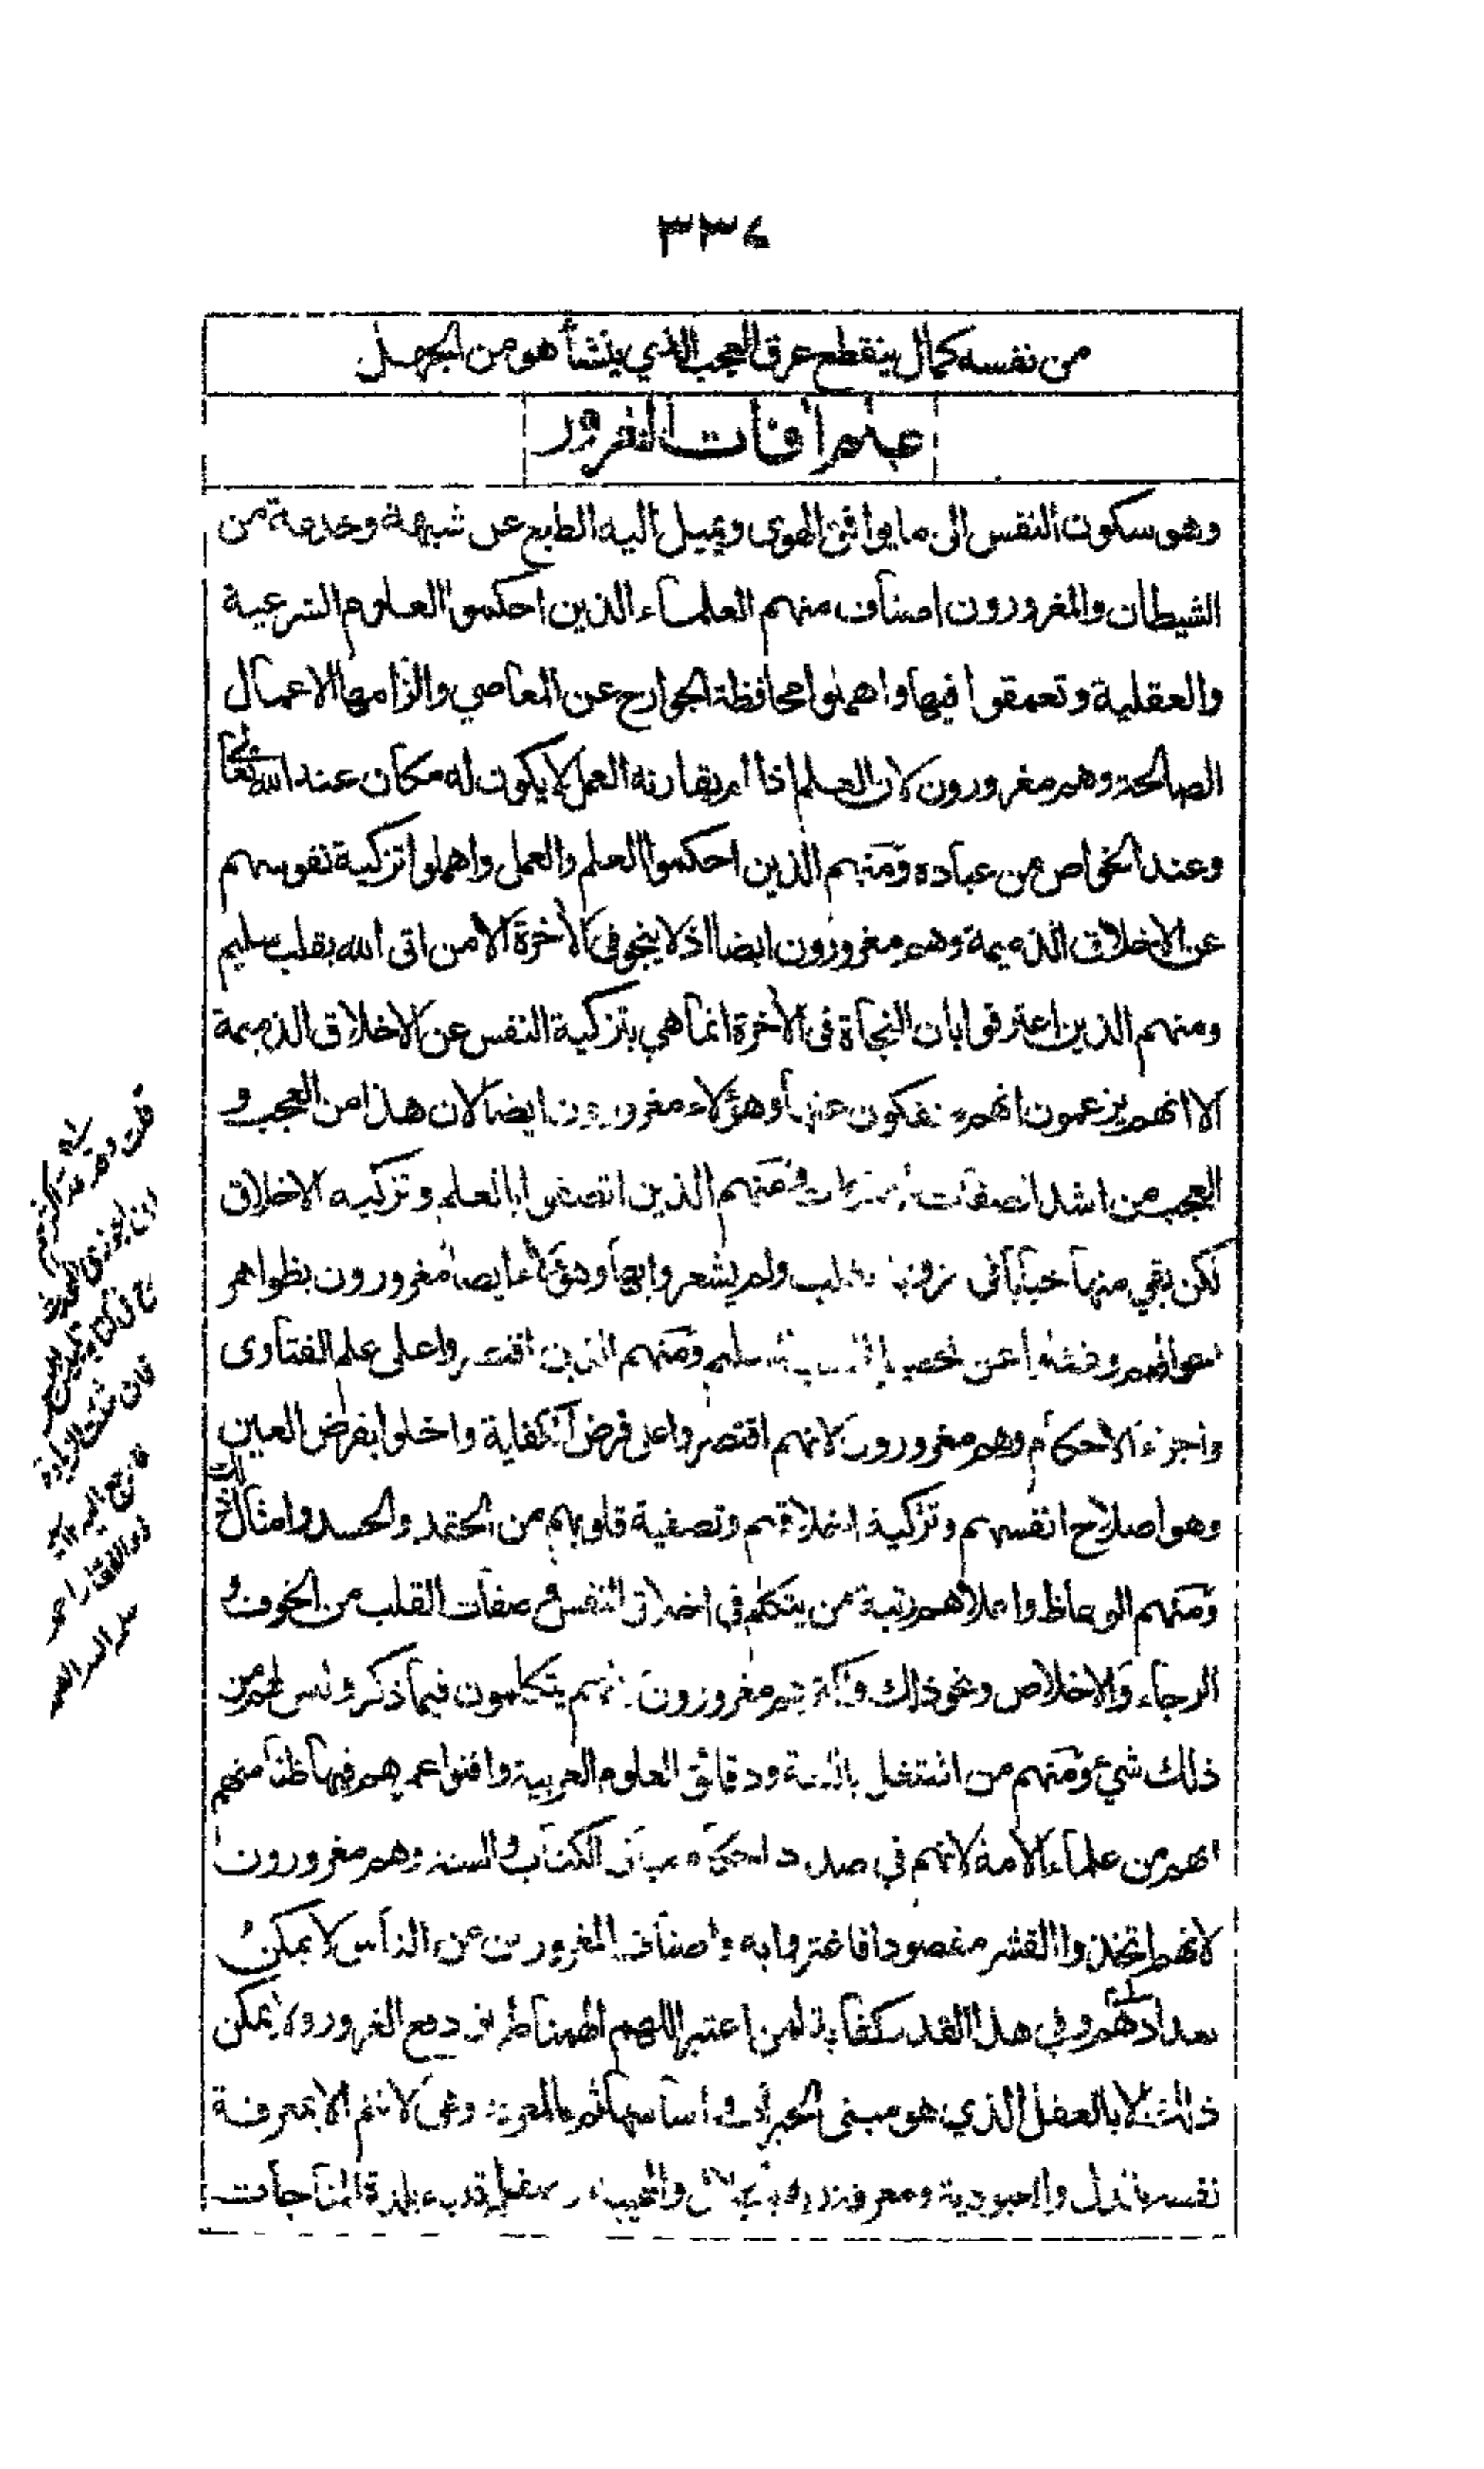 ٣٣٤
من نفسه كمال ينقطع عرق العجب الذي ينشأ هو من الجهل
علم افات الغرور
وهو سكون النفس الى ما يوافق الهوى ويميل اليه الطبع عن شبهة وخدعة من
الشيطان والمغرورون اصناف منهم العلماء الذين احكموا العلوم الشرعية
والعقلية وتعمقوا فيها واهملوا محافظة الجوارح عن المعاصي والزامها الاعمال
الصالحة وهم مغرورون لان العلم اذا لم يقارنه العمل لا يكون له مكان عند الله تعالى
وعند الخواص من عباده ومنهم الذين احكموا العلم والعمل واهملوا تزكية نفوسهم
عن الاخلاق الذميمة وهم مغرورون ايضا اذ لا ينجو فى الأخرة الا من اتى الله بقلب سليم
ومنهم الذين اعترفوا بان النجاة فى الأخرة انما هي بتزكية النفس عن الاخلاق الذميمة
الا انهم يزعمون انهم منفكون عنها وهؤلاء مغرورون ايضا لان هذا من العجب و
العجب من اشد الصفات ومنهم الذين اتصفوا بالعلم وتزكيه الاخلاق
لكن بقي منها خبايا فى القلب ولم يشعروا بها وهؤلاء ايضا مغرورون بظواهر
احوالهم وغفلوا عن تحصيل القلب السليم ومنهم الذين اقتصروا على علم الفتاوى
واجراء الاحكام وهم مغرورون لانهم اقتصروا على فرض الكفاية واخلوا بفرض العين
وهو اصلاح انفسهم وتزكية اخلاقهم وتصفية قلوبهم من الحقد والحسد وامثال ذلك
ومنهم الوعاظ واعلاهم رتبة من يتكلم في اخلاق النفس وصفات القلب من الخوف و
الرجاء والاخلاص ونحو ذلك مغرورون لانهم يتكلمون فيما ذكر وليس لهم من
ذلك شئ ومنهم من اشتغل ودقائق العلوم العربية وافنوا عمرهم فيها ظنا منهم
انهم من علماء الامة لانهم في صدد الكتاب والسنة وهم مغرورون
لانهم اتخذوا القشر مقصودا فاغتروا به واصناف المغرورين من الناس لا يمكن
تعدادهم وفي هذا القدر كفاية لمن اعتبر اللهم الهمنا طريق دفع الغرور ولا يمكن
ذلك الا بالعقل الذي هو مبنى الخيرات واساسها ثم بالمعرفة وهى لا تتم الا بمعرفة
نفسه بالذل والعبودية ومعرفة ربه بالجلال والهيبة بلذة المناجات